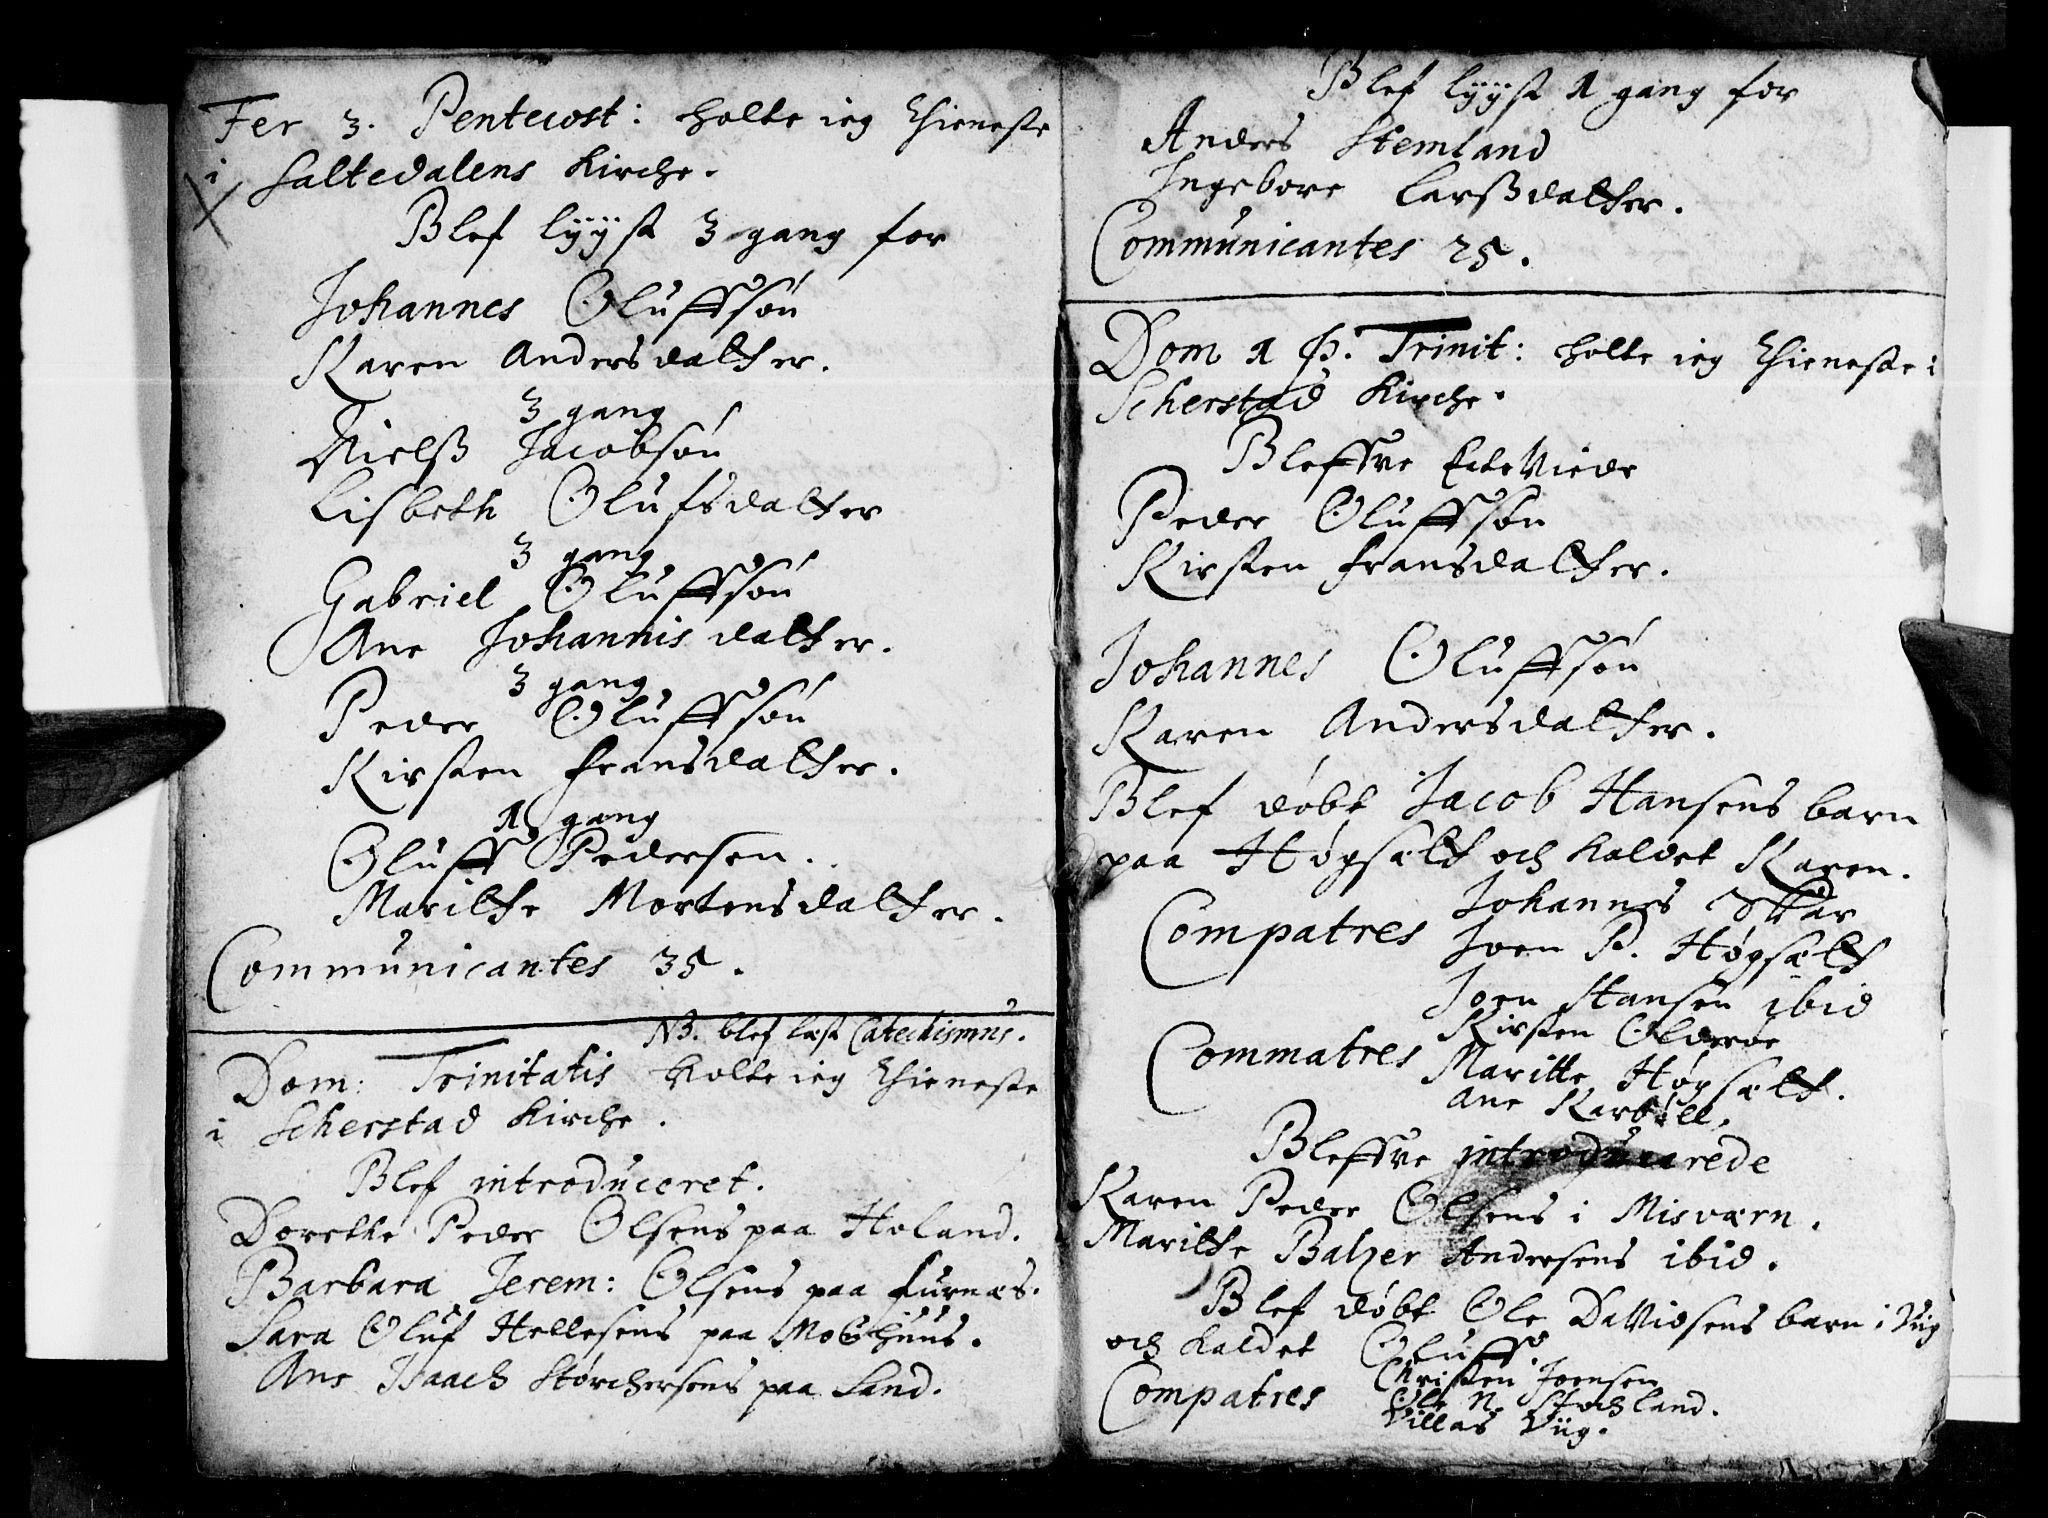 Fer 3. Pentecost: holte ieg thieneste
i Saltedalens Kirche.
Blef lyyst 3 gang for
Johannes Oluffsøn
Karen Andersdatter.
3 gang
Nielß Jacobsøn
Lisbeth Olufsdatter
3 gang
Gabriel Oluffsøn
Ane Johannisdatter.
3 gang
Peder Oluffsøn
Kirsten Fransdatter.
1 gang
Oluff Pedersen.
Maritte Mortensdatter.
Communicantes 35.
NB. blef læst Catechismus.
Dom: Trinitatis Holte ieg thieneste
i Scherstad Kirche.
Blef introduceret.
Dorethe Peder Olsens paa Holand.
Barbara Jerem: Olsens paa Furnæs.
Sara Oluf Hellesens paa Mobchuus.
Ane Isaach Størchersens paa Sand.
Blef lyyst 1 gang for
Anders Stemland
Ingebore Larßdatter.
Communicantes 25.
Dom 1 P. Trinit: holte ieg thieneste i
Scherstad Kirche.
Bleffve Ecteviede
Peder Oluffsøn
Kirsten Fransdatter.
Johannes Oluffsøn
Karen Andersdatter.
Blef døbt Jacob Hansens barn
paa Høgsæth och kaldet Karen.
Compatres Johannes Skar
Joen P. Høgsæth
Joen Hansen ibid
Commatres Kirsten Olderøe
Maritte Høgsæth.
Ane Karbøll.
Bleffve introducerede
Karen Peder Olsens i Misværn.
Maritte Balzer Andersens ibid.
Blef døbt Ole Davidsens barn i Viig
och kaldet Oluff.
Compatres Christen Joensen
Ole N. Stochland.
Villas Viig.